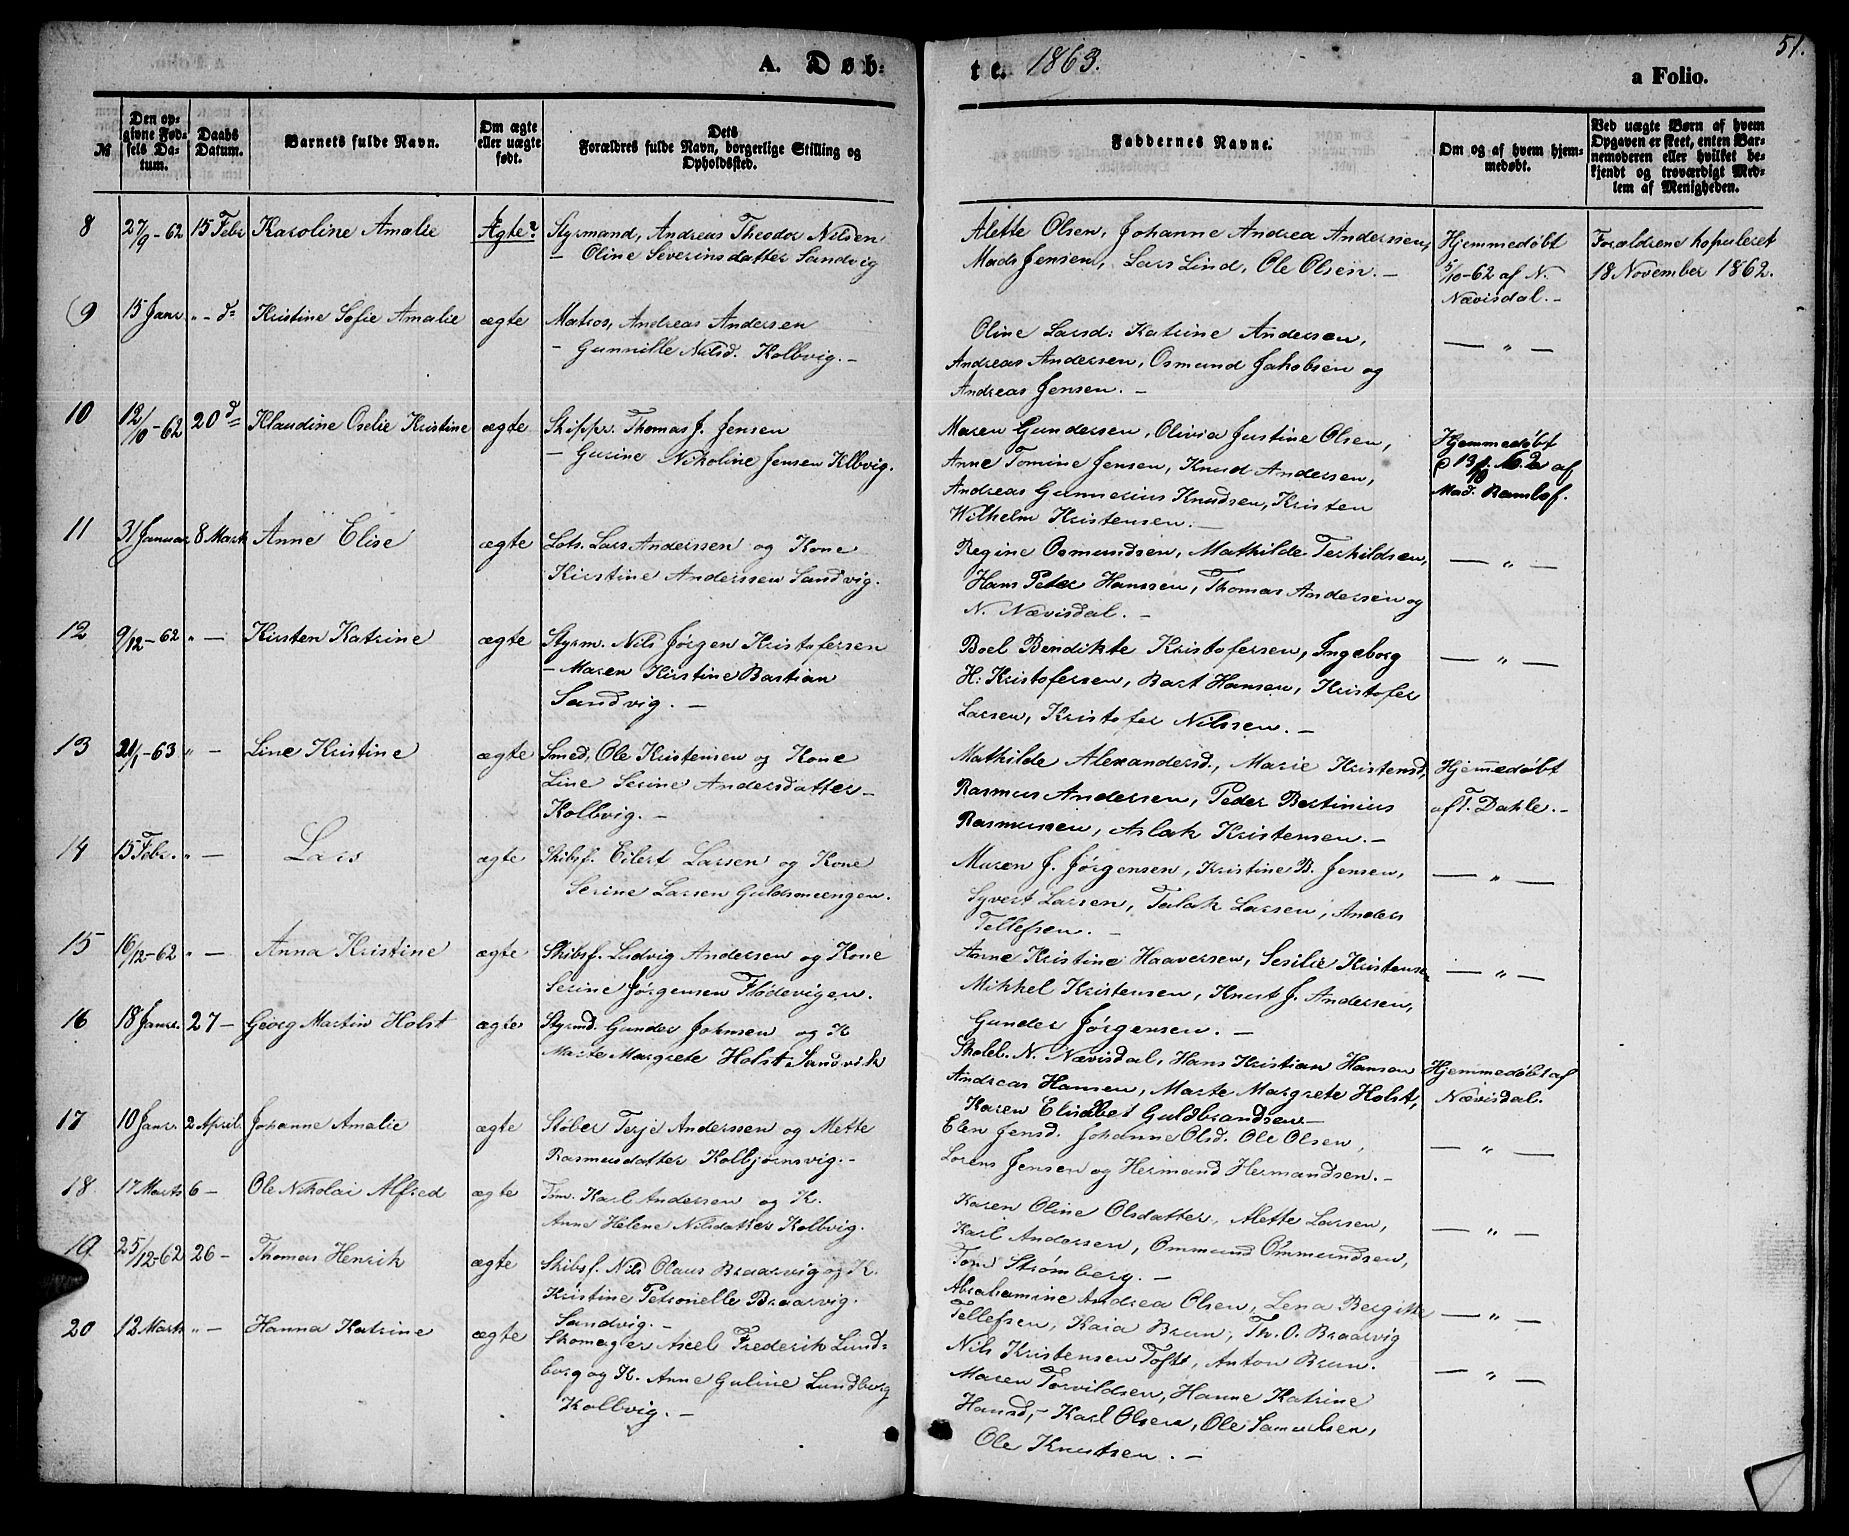 A. Døb-
te. 1863.
51.
a Folio.
№
Den op-
givne Fød-
sels Da-
tum.
Daabs
Datum.
Barnets fulde Navn.
Om ægte
eller uægte
født.
Dets
Forældres fulde Navn, borgerlige Stilling og
Opholdssted.
Faddernes Navne.
Om og af hvem hjem-
medøbt.
Ved uægte Børn af hvem
Opgaven er skeet, enten Bar-
nemoderen eller hvilket be-
kjendt og troværdigt Med-
lem af Menigheden.
8 27/9-62 15 Febr Karoline Amalie Ægte? Styrmand, Andreas Theodor Nilsen
- Oline Severinsdatter Sandvig
Alette Olsen, Johanne Andrea Anderssen,
Mads Jensen, Lars Lind, Ole Olsen. -
Hjemmedøbt
5/10-62 af N.
Nævisdal. -
Forældrene kopuleret
18 November 1862.
9 15 Janr. " - d= Kristine Sofie Amalie ægte Matros, Andreas Andersen
- Gunnille Nilsd. Kolbvig. -
Oline Larsd: Katrine Andersen,
Andreas Andersen, Osmund Jakobsen og
Andreas Jensen. -
— " —
10 12/10-62 20 d= Klaudine Oselie Kristine ægte Skippr. Thomas J. Jensen
- Gurine Nikoline Jensen Klbvig.
Maren Gundersen, Olivia Justine Olsen,
Anne Tomine Jensen, Knud Andersen,
Andreas Gunnerius Knudsen, Kristen
Wilhelm Kristensen. -
Hjemmedøbt
af
Mad. Ramlsf.
11 31 Januar 8 Marts Anne Elise ægte Lots. Lars Anderssen og Kone
Kirstine Anderssen Sandvig.
Regine Osmundsen, Mathilde Terkildsen,
Hans Peter Hanssen, Thomas Andersen og
N. Nævisdal. -
— " —
12 9/12-62 " — Kirsten Katrine ægte Styrm. Nils Jørgen Kristofersen
- Maren Kirstine Bastian
Sandvig. -
Boel Bendikte Kristofersen, Ingeborg
H: Kristofersen, Bart Hansen, Kristofer
Larsen, Kristofer Nilssen. -
— " —
13 21/1-63 " — Line Kristine ægte Smed, Ole Kristensen og Kone
Line Serine Andersdatter -
Kolbvig. -
Mathilde Alexandersd., Marie Kristensd,
Rasmus Andersen, Peder Bertinius
Rasmussen, Aslak Kristensen. -
Hjemmedøbt
af T. Dahle. -
14 15 Febr. " — Lars ægte Skibsf. Eilert Larsen og Kone
Serine Larsen Guldsmengen.
Maren J. Jørgensen, Kristine B. Jensen,
Syvert Larsen, Talak Larsen, Anders
Tellefsen. -
— " —
15 16/12-62 " — Anna Kristine ægte Skibsf. Ludvig Andersen og Kone
Serine Jørgensen Flødevigen.
Anne Kristine Haaversen, Sesilie Kristensen
Mikkel Kristensen, Knut J. Andersen,
Gunder Jørgensen. -
— " —
16 18 Janr. 27 - Georg Martin Holst ægte Styrmd. Gunder Johnsen og K
Marte Margrete Holst Sandvik
Skolel. N. Nævisdal, Hans Kristian Hansen
Andreas Hansen, Marte Margrete Holst,
Karen Elisabet Guldbrandsen -
Hjemmedøbt af
Nævisdal.
17 10 Janr. 2 April. Johanne Amalie ægte Støber Terje Anderssen og Mette
Rasmusdatter Kolbjørnsvig. -
Elen Jensd. Johanne Olsd. Ole Olsen,
Lorens Jensen og Hermand Hermandsen. -
— " —
18 17 Marts 6 - Ole Nikolai Alfred ægte Tm. Karl Andersen og K.
Anne Helene Nilsdatter Kolbvig.
Karen Oline Olsdatter, Alette Larsen,
Karl Andersen, Ommund Ommundsen,
Tom Strømberg. -
— " —
19 25/12-62 26 - Thomas Henrik ægte Skibsf. Nils Olaus Braarvig og K.
Kristine Petronelle Braarvig.
Sandvig. -
Abrahamine Andrea Olsen, Lena Bergitte
Tellefsen, Kaia Brun, Th. O. Braarvig
Nils Kristensen Toft, Anton Brun.
— " —
20 12 Marts " — Hanna Katrine ægte Skomager Axel Frederik Lund-
borg og K. Anne Guline Lundborg
Kolbvig. -
Maren Torvildsen, Hanne Katrine
Hansd, - Karl Olsen, Ole Samuelsen,
Ole Knutsen. -
— " —